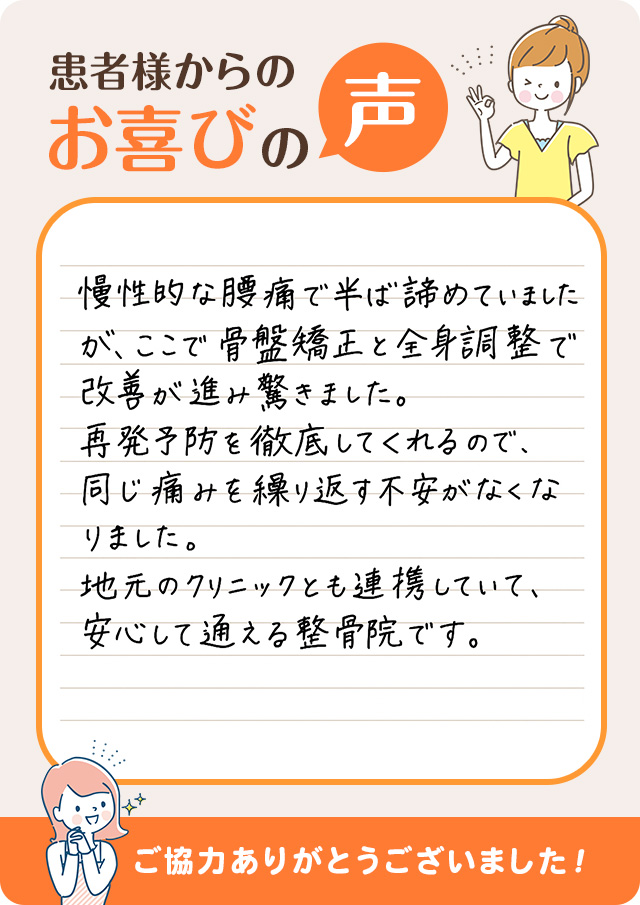 患者様からの
お喜びの声
慢性的な腰痛で半ば諦めていました
が、ここで骨盤矯正と全身調整で
改善が進み驚きました。
再発予防を徹底してくれるので、
同じ痛みを繰り返す不安がなくな
りました。
地元のクリニックとも連携していて、
安心して通える整骨院です。
ご協力ありがとうございました！